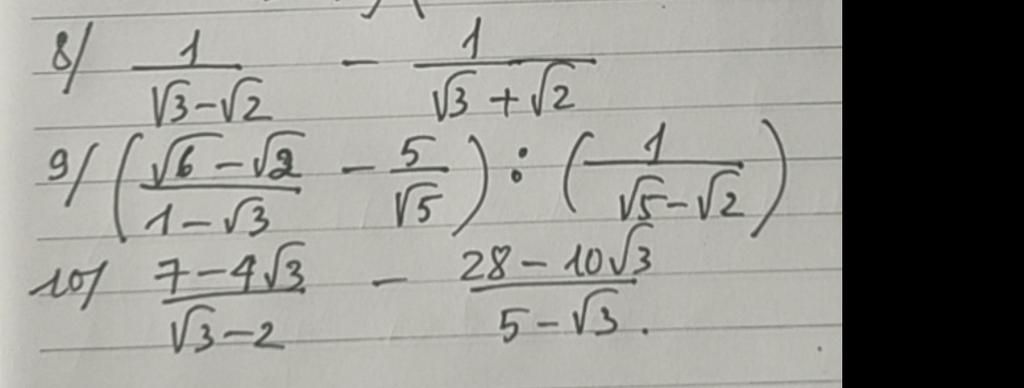 8/ \frac{1}{\sqrt{3}-\sqrt{2}} - \frac{1}{\sqrt{3}+\sqrt{2}}
9/ \left(\frac{\sqrt{6}-\sqrt{2}}{1-\sqrt{3}} - \frac{5}{\sqrt{5}}\right) : \left(\frac{1}{\sqrt{5}-\sqrt{2}}\right)
10/ \frac{7-4\sqrt{3}}{\sqrt{3}-2} - \frac{28-10\sqrt{3}}{5-\sqrt{3}}.